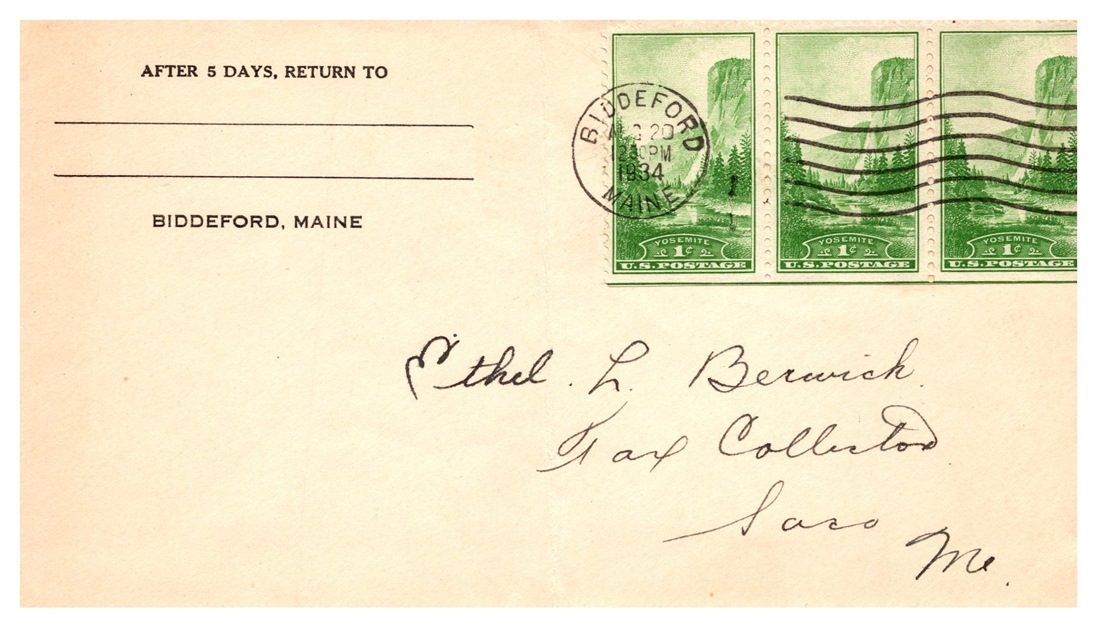 AFTER 5 DAYS, RETURN TO
BIDDEFORD, MAINE
BIDDEFORD
AUG 20
1934
MAINE
YOSEMITE
1¢
U.S.POSTAGE
YOSEMITE
1¢
U.S.POSTAGE
YOSEMITE
1¢
U.S.POSTAGE
Ethel. L. Berwick
Tax Collector
Saco
Me.